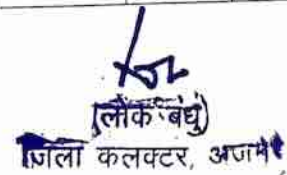 (लोक बंधु)
जिला कलक्टर, अजमेर